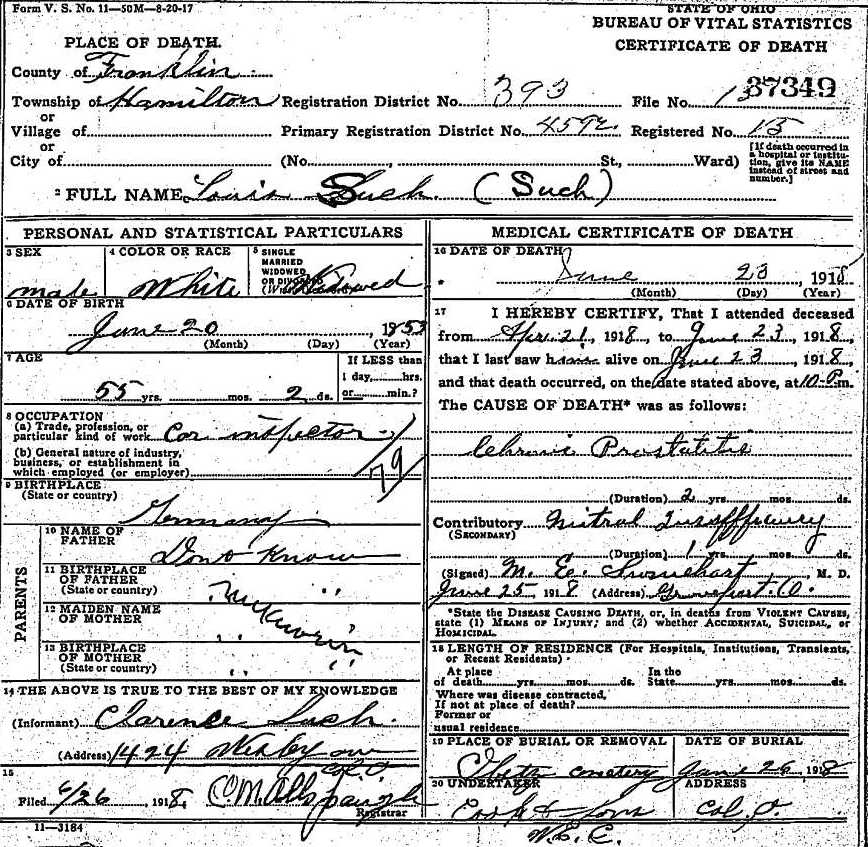 Form V. S. No. 11—50M—8-20-17
STATE OF OHIO
BUREAU OF VITAL STATISTICS
CERTIFICATE OF DEATH
PLACE OF DEATH.
County of Franklin
Township of Hamilton Registration District No. 393 File No. 37349
or
Village of Primary Registration District No. 4592 Registered No. 15
or
City of (No. , St., Ward)
[If death occurred in a hospital or institution, give its NAME instead of street and number.]
2 FULL NAME Louis Such (Such)
PERSONAL AND STATISTICAL PARTICULARS
3 SEX
male
4 COLOR OR RACE
White
5 SINGLE
MARRIED
WIDOWED
OR DIVORCED
Widowed
6 DATE OF BIRTH
June 20, 1853
(Month) (Day) (Year)
7 AGE
55 yrs. mos. 2 ds.
If LESS than
1 day, hrs.
or min.?
8 OCCUPATION
(a) Trade, profession, or
particular kind of work Car inspector
(b) General nature of industry,
business, or establishment in
which employed (or employer)
79
9 BIRTHPLACE
(State or country)
Germany
PARENTS
10 NAME OF
FATHER
Dont Know
11 BIRTHPLACE
OF FATHER
(State or country)
" "
12 MAIDEN NAME
OF MOTHER
Unknown
13 BIRTHPLACE
OF MOTHER
(State or country)
" "
14 THE ABOVE IS TRUE TO THE BEST OF MY KNOWLEDGE
(Informant) Clarence Such
(Address) 1424 ave
Col. O
15
Filed 6/26, 1918,
Registrar
11—3184
MEDICAL CERTIFICATE OF DEATH
16 DATE OF DEATH
June 23, 1918
(Month) (Day) (Year)
17 I HEREBY CERTIFY, That I attended deceased
from Apr. 21, 1918, to June 23, 1918,
that I last saw him alive on June 23, 1918,
and that death occurred, on the date stated above, at 10 P.m.
The CAUSE OF DEATH* was as follows:
Chronic Prostatitis
(Duration) 2 yrs. mos. ds.
Contributory Mitral Insufficiency
(SECONDARY)
(Duration) 1 yrs. mos. ds.
(Signed) M. E. Swinehart, M. D.
June 25, 1918 (Address) Groveport, O.
*State the DISEASE CAUSING DEATH, or, in deaths from VIOLENT CAUSES,
state (1) MEANS OF INJURY; and (2) whether ACCIDENTAL, SUICIDAL, or
HOMICIDAL.
18 LENGTH OF RESIDENCE (For Hospitals, Institutions, Transients,
or Recent Residents)
At place In the
of death yrs. mos. ds. State yrs. mos. ds.
Where was disease contracted,
If not at place of death?
Former or
usual residence
19 PLACE OF BURIAL OR REMOVAL
cemetery
DATE OF BURIAL
June 26, 1918
20 UNDERTAKER
Cook & Sons
W. E. C.
ADDRESS
Col, O.